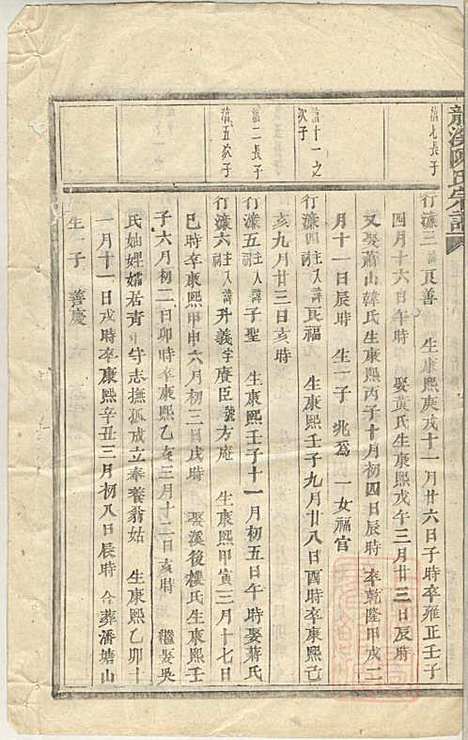 龍溪陳氏宗譜
濂七長子
行濂三 諱良善 生康熙庚戌十一月廿六日子時卒雍正壬子
四月十六日午時 娶黃氏生康熙戊午三月廿三日辰時
又娶蕭山韓氏生康熙丙子十月初四日辰時 卒乾隆甲戌二
月十一日辰時 生一子 兆爲 一女福官
濂十一之次子
行濂四 諱良福 生康熙壬子九月廿八日酉時卒康熙己
亥九月廿三日亥時
濂二長子
行濂五 諱子聖 生康熙壬子十一月初五日午時娶蔣氏
濂五次子
行濂六 諱升義字賡臣號方庵 生康熙甲寅三月十七日
巳時卒康熙甲申六月初三日戌時 娶溪後樓氏生康熙壬
子六月初二日卯時卒康熙乙亥三月十二日亥時 繼娶吳
氏妯娌孀居青年守志撫孤成立奉養翁姑 生康熙乙卯十
一月十一日戌時卒康熙辛丑三月初八日辰時 合葬潘塘山
生一子 善慶